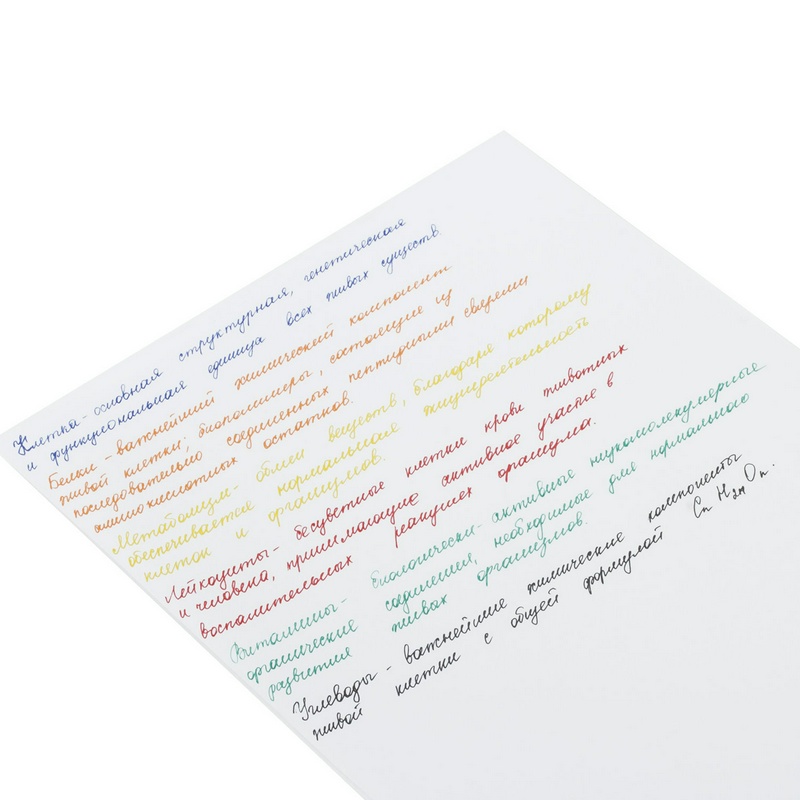 Клетка - основная структурная, генетическая
и функциональная единица всех живых существ.
Белки - важнейший химический компонент
живой клетки; биополимеры, состоящие из
последовательно соединенных пептидными связями
аминокислотных остатков.
Метаболизм - обмен веществ, благодаря которому
обеспечивается нормальная жизнедеятельность
клеток и организмов.
Лейкоциты - бесцветные клетки крови животных
и человека, принимающие активное участие в
воспалительных реакциях организма.
Витамины - биологически-активные низкомолекулярные
органические соединения, необходимые для нормального
развития живых организмов.
Углеводы - важнейшие химические компоненты
живой клетки с общей формулой Cn H2n On.